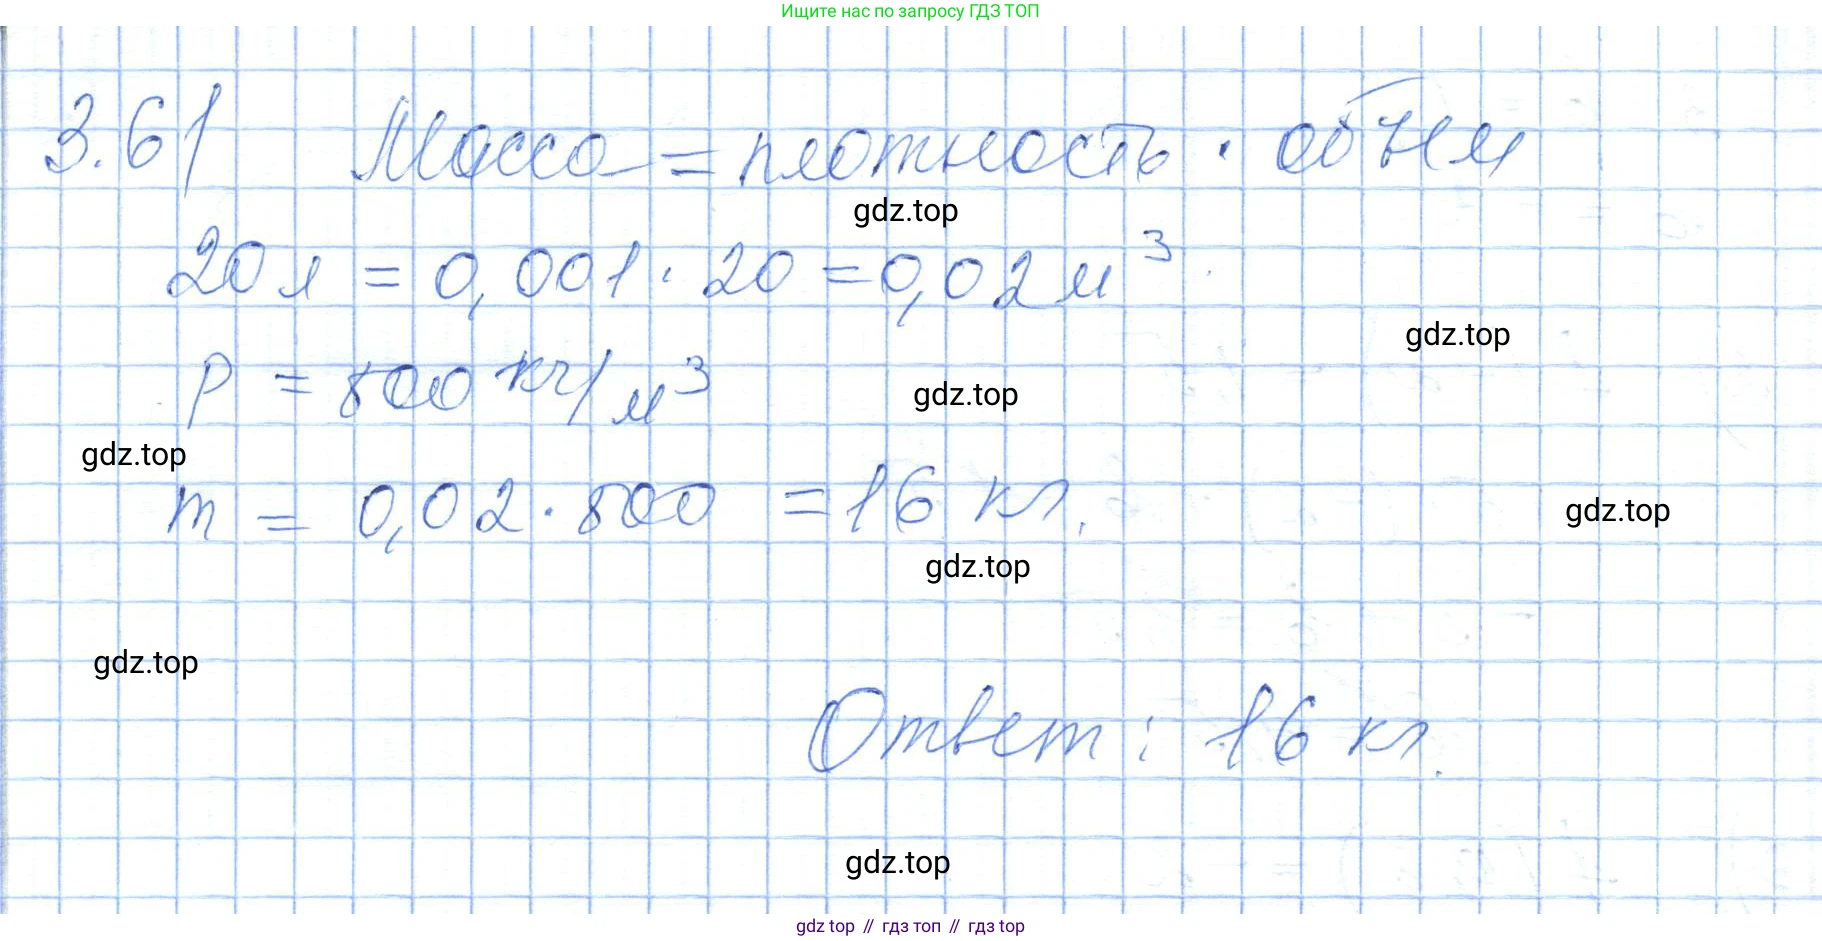 Ищите нас по запросу ГДЗ ТОП
3.61 Масса = плотность · объём
gdz.top
20 л = 0,001 · 20 = 0,02 м³
gdz.top
ρ = 800 кг/м³
gdz.top
gdz.top
m = 0,02 · 800 = 16 кг.
gdz.top
gdz.top
gdz.top
Ответ: 16 кг.
gdz.top
gdz top // гдз топ // гдз top